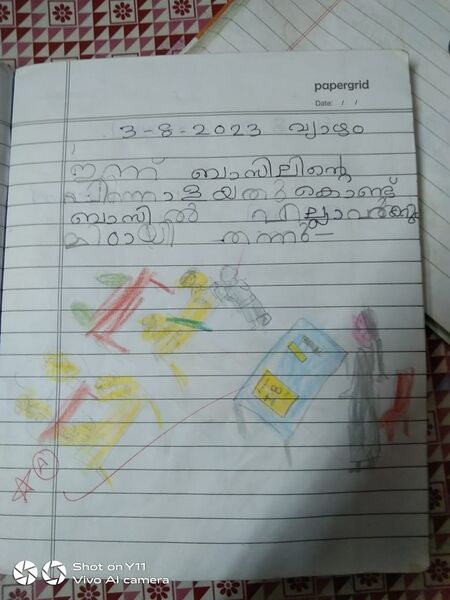 papergrid
Date: / /
3-8-2023 വ്യാഴം
ഇന്ന് ബാസിലിന്റെ
പിറന്നാളായതു കൊണ്ട്
ബാസിൽ എല്ലാവർക്കും
മിഠായി തന്നു
A
Shot on Y11
Vivo AI camera